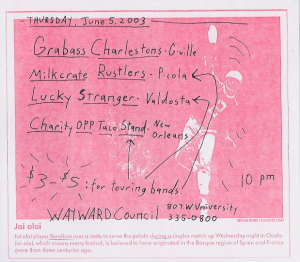 THURSDAY, June 5, 2003
Grabass Charlestons - G-ville
Milkcrate Rustlers - P-cola
Lucky Stranger - Valdosta
Charity OPP Taco Stand - New Orleans
$3-$5: for touring bands
10 pm
WAYWARD COUNCIL
807 W University
335-0800
Jai alai
Jai alai player uses a cesta to serve the pelota during a singles match up Wednesday night in Ocala.
Jai alai, which means merry festival, is believed to have originated in the Basque region of Spain and France
more than three centuries ago.